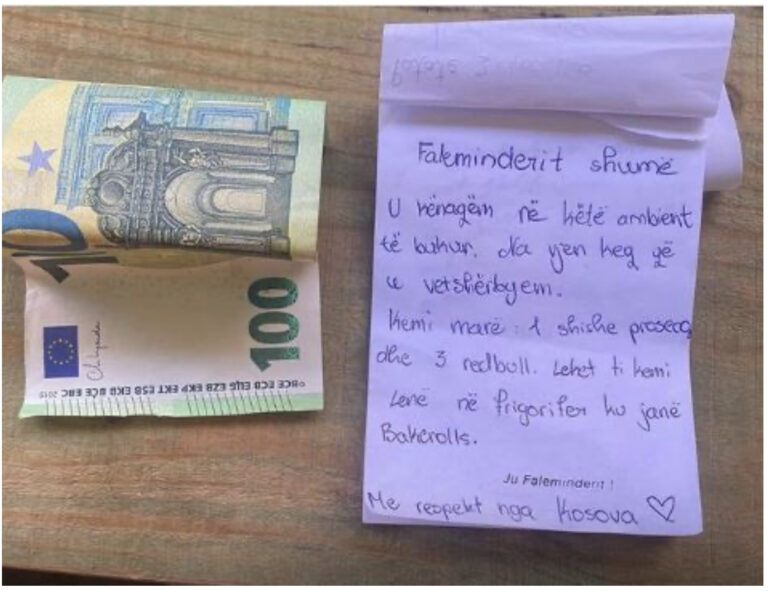 10
100
©BCE ECB ЕЦБ EZB EKP EKT ESB EKB BĊE EBC 2019
Faleminderit shumë
U kënaqëm në këtë ambient
të bukur. Na vjen keq që
u vetshërbyem.
Kemi marë: 1 shishe prosecq
dhe 3 redbull. Lehet ti kemi
Lenë në frigorifer ku janë
Bakërolls.
Ju Faleminderit !
Me respekt nga Kosova